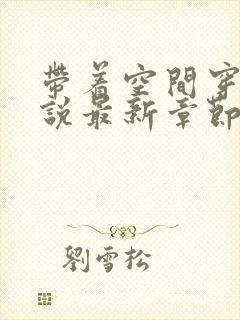 帶着空間穿
說最新章節
劉雪松